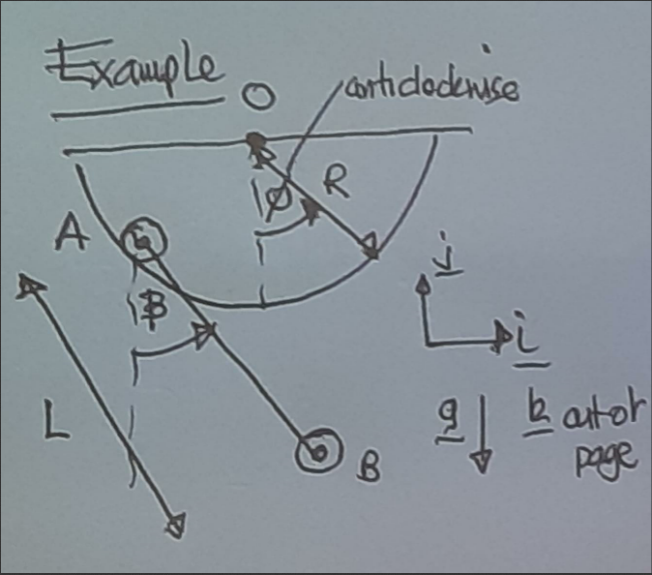 Example
O
anticlockwise
R
ϕ
A
j
β
i
L
g
k out of
page
B